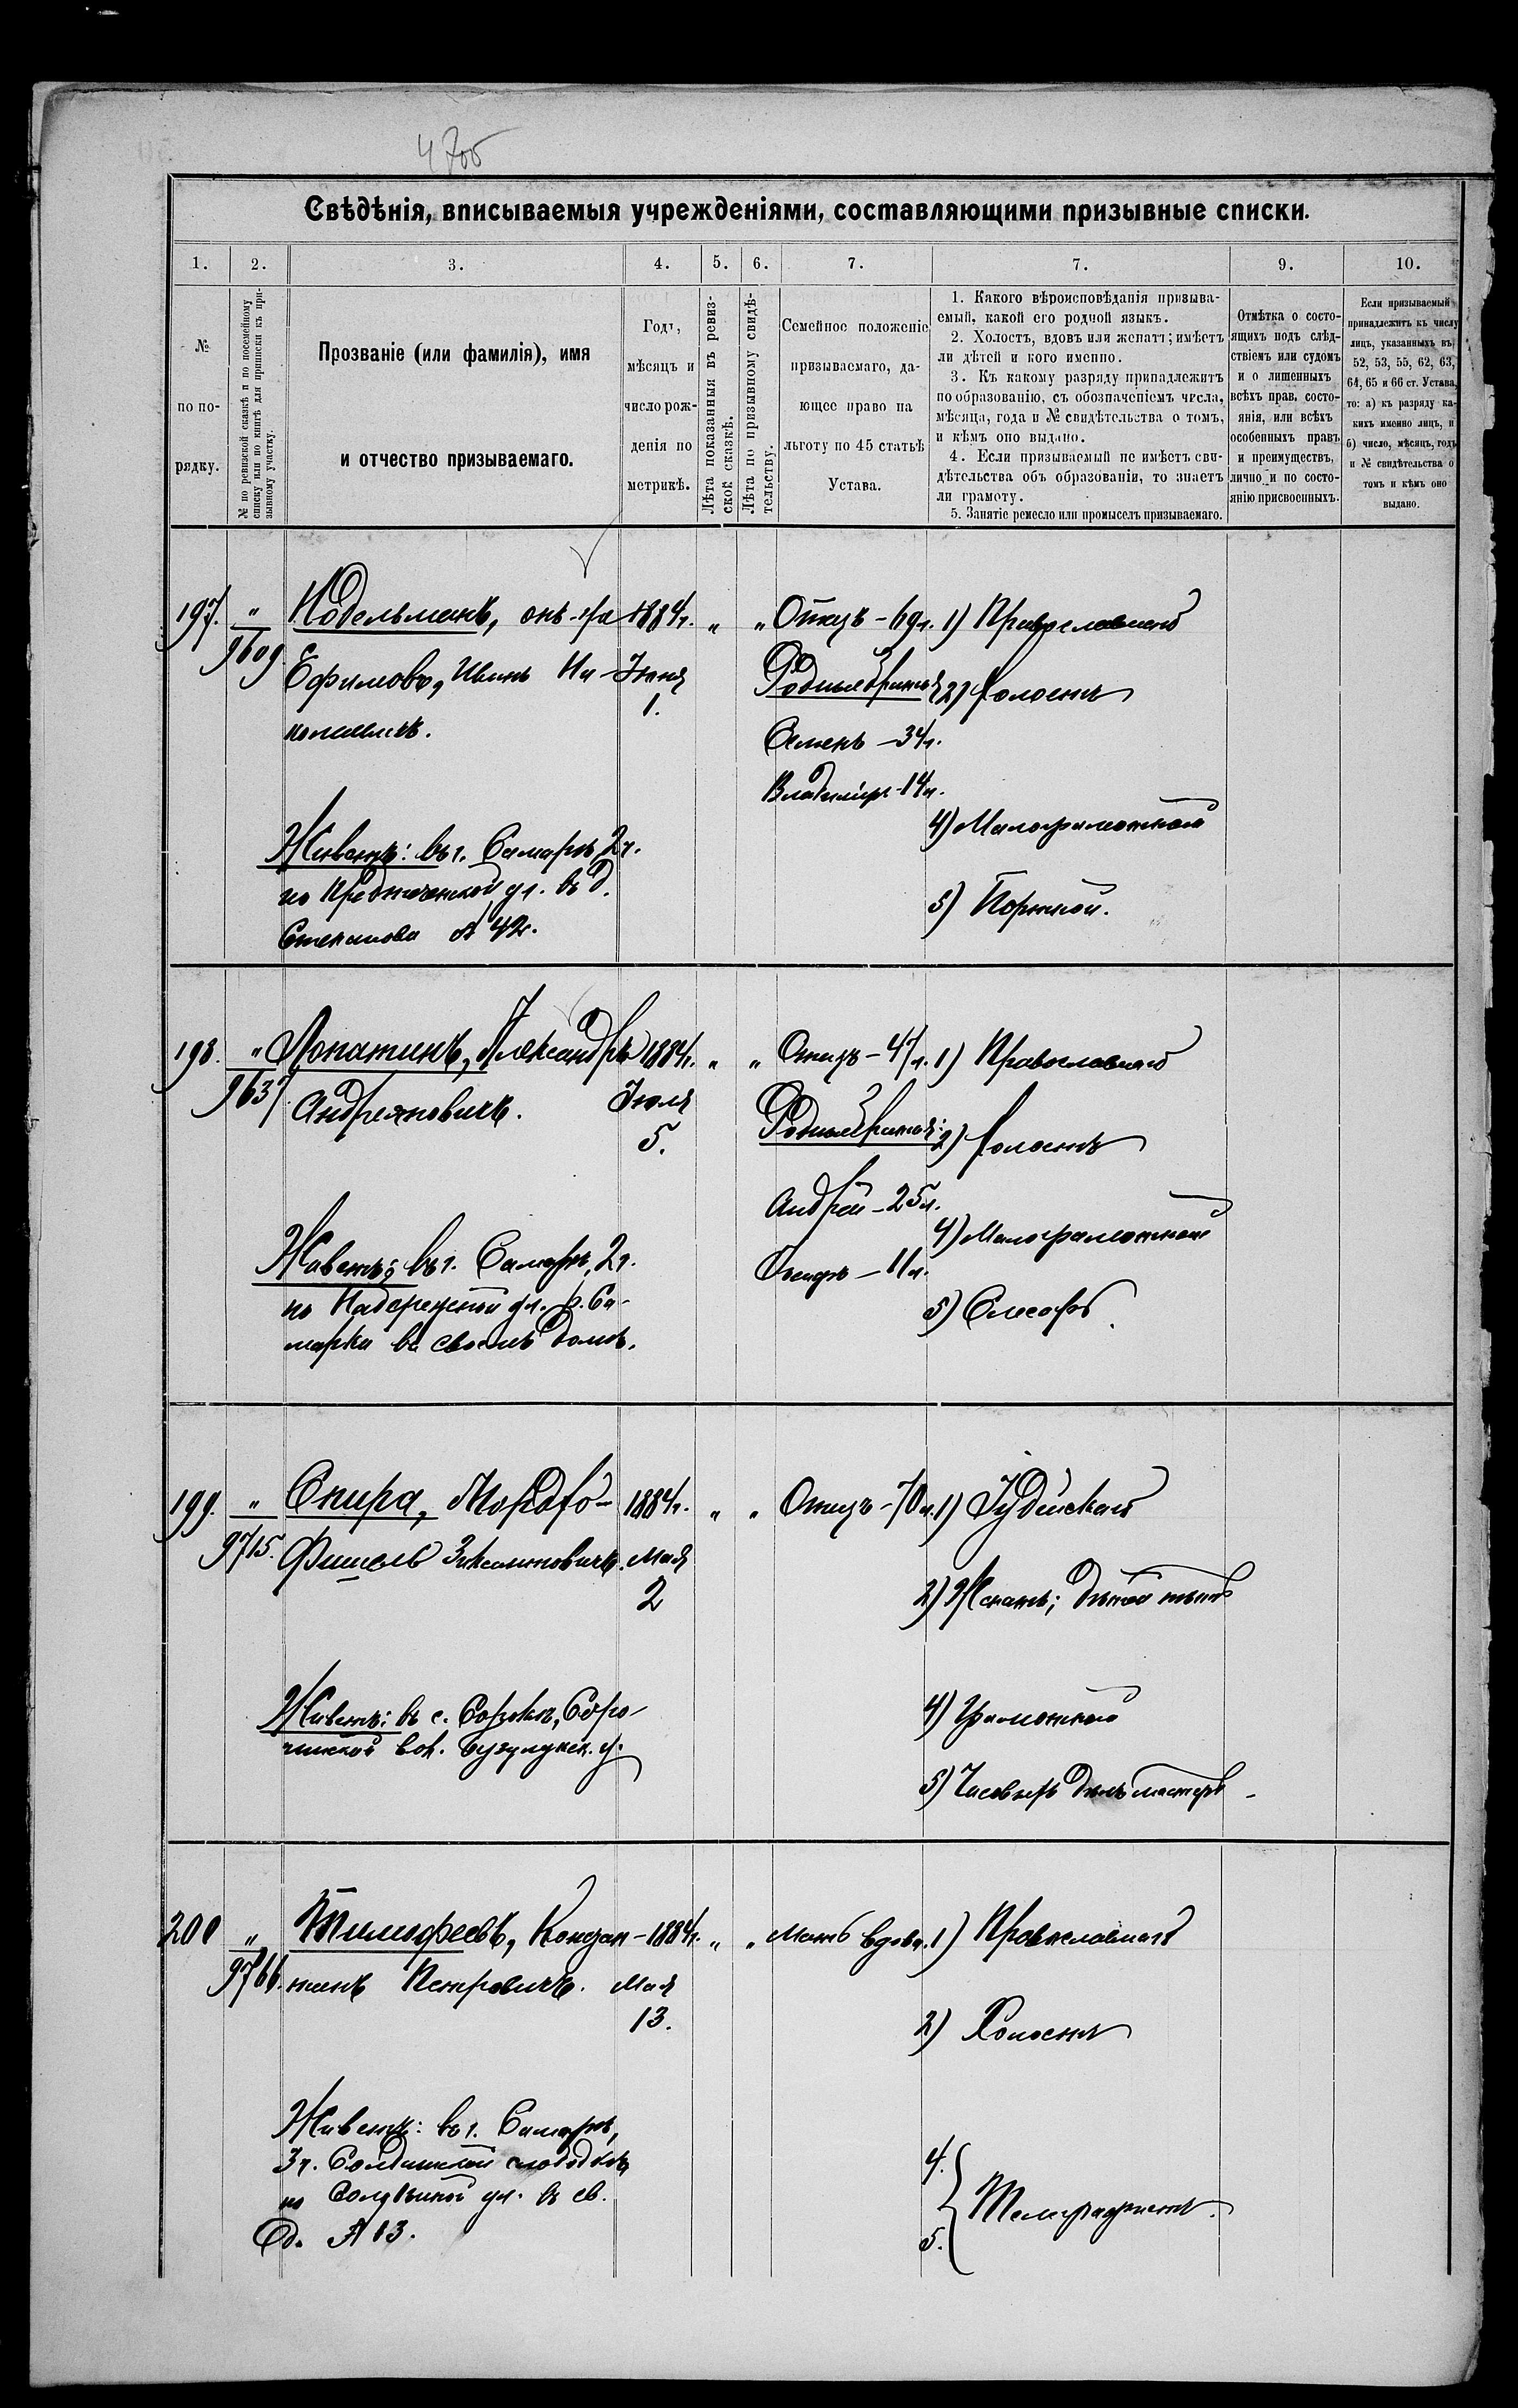 Свѣдѣнія, вписываемыя учрежденіями, составляющими призывные списки.
1. 2. 3. 4. 5. 6. 7. 7. 9. 10.
№
по по-
рядку.
№ по ревизской сказкѣ и по посемейному
списку или по книгѣ для приписки къ при-
зывному участку.
Прозваніе (или фамилія), имя
и отчество призываемаго.
Годъ,
мѣсяцъ и
число рож-
денія по
метрикѣ.
Лѣта показанныя въ ревиз-
ской сказкѣ.
Лѣта по призывному свидѣ-
тельству.
Семейное положеніе
призываемаго, да-
ющее право на
льготу по 45 статьѣ
Устава.
1. Какого вѣроисповѣданія призыва-
емый, какой его родной языкъ.
2. Холостъ, вдовъ или женатъ; имѣетъ
ли дѣтей и кого именно.
3. Къ какому разряду принадлежитъ
по образованію, съ обозначеніемъ числа,
мѣсяца, года и № свидѣтельства о томъ,
и кѣмъ оно выдано.
4. Если призываемый не имѣетъ сви-
дѣтельства объ образованіи, то знаетъ
ли грамоту.
5. Занятіе ремесло или промыселъ призываемаго.
Отмѣтка о состо-
ящихъ подъ слѣд-
ствіемъ или судомъ
и о лишенныхъ
всѣхъ прав, состо-
янія, или всѣхъ
особенныхъ правъ
и преимуществъ,
лично и по состо-
янію присвоенныхъ.
Если призываемый
принадлежитъ къ числу
лицъ, указанныхъ въ
52, 53, 55, 62, 63,
64, 65 и 66 ст. Устава,
то: а) къ разряду ка-
кихъ именно лицъ, и
б) число, мѣсяцъ, годъ
и № свидѣтельства о
томъ и кѣмъ оно
выдано.
197. "
9609.
Нодельманъ, онъ-же
Ефимовъ, Иванъ Ни-
колаевичъ.
1884г.
Іюня
1.
" "
Отецъ - 69л.
Родные братья:
Семенъ - 34л.
Владиміръ - 14л.
1) Православный
2) Холостъ
4) Малограмотный
5) Портной.
Живетъ: въ г. Самарѣ, 2ч.
по Предтеченской ул. въ д.
Степанова № 42.
198. "
9637.
Лопатинъ, Александръ
Андреяновичъ.
1884г.
Іюля
5.
" "
Отецъ - 47л.
Родные братья:
Андрей - 25л.
Осипъ - 11л.
1) Православный
2) Холостъ
4) Малограмотный
5) Слесарь
Живетъ: въ г. Самарѣ, 2ч.
по Набережной ул. р. Са-
марки въ своемъ домѣ.
199. "
9715.
Спира, Мордко-
Фишель
1884г.
Мая
2
" "
Отецъ - 70л.
1) Іудейскаго
2) Женатъ; дѣтей нѣтъ
4) Грамотный
5) Часовыхъ дѣлъ мастеръ
Живетъ: въ с. Сорокѣ, Соро-
чинской вол. Бузулукск. у.
200 "
9766.
Тимофеевъ, Констан-
тинъ Петровичъ.
1884г.
Мая
13.
" "
Мать вдова.
1) Православный
2) Холостъ
4.
5.
Телеграфистъ.
Живетъ: въ г. Самарѣ,
3ч. Солдатской слободкѣ
по ул. въ св.
д. № 13.